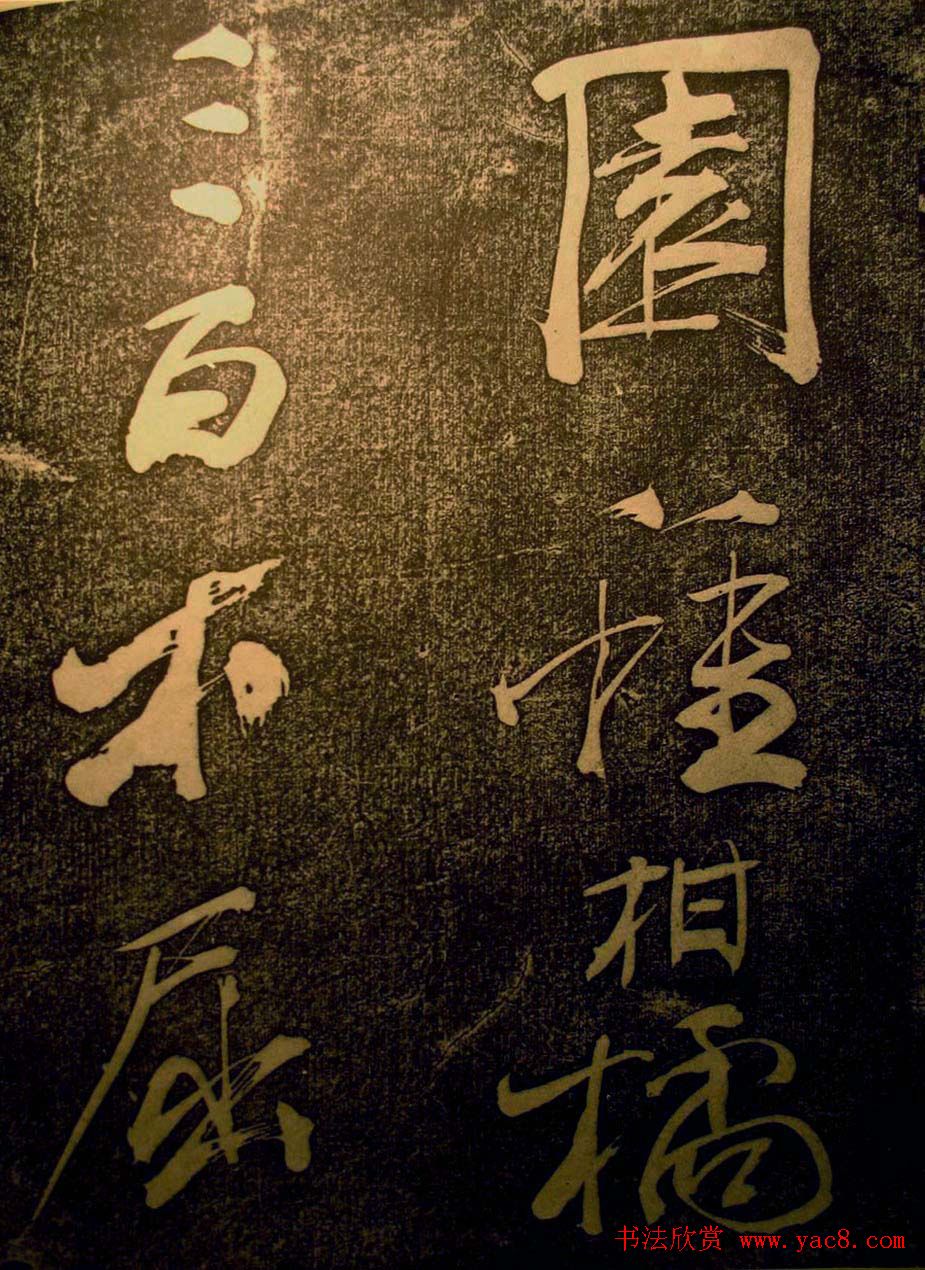 園種柑橘
三百本屈
书法欣赏 www.yac8.com